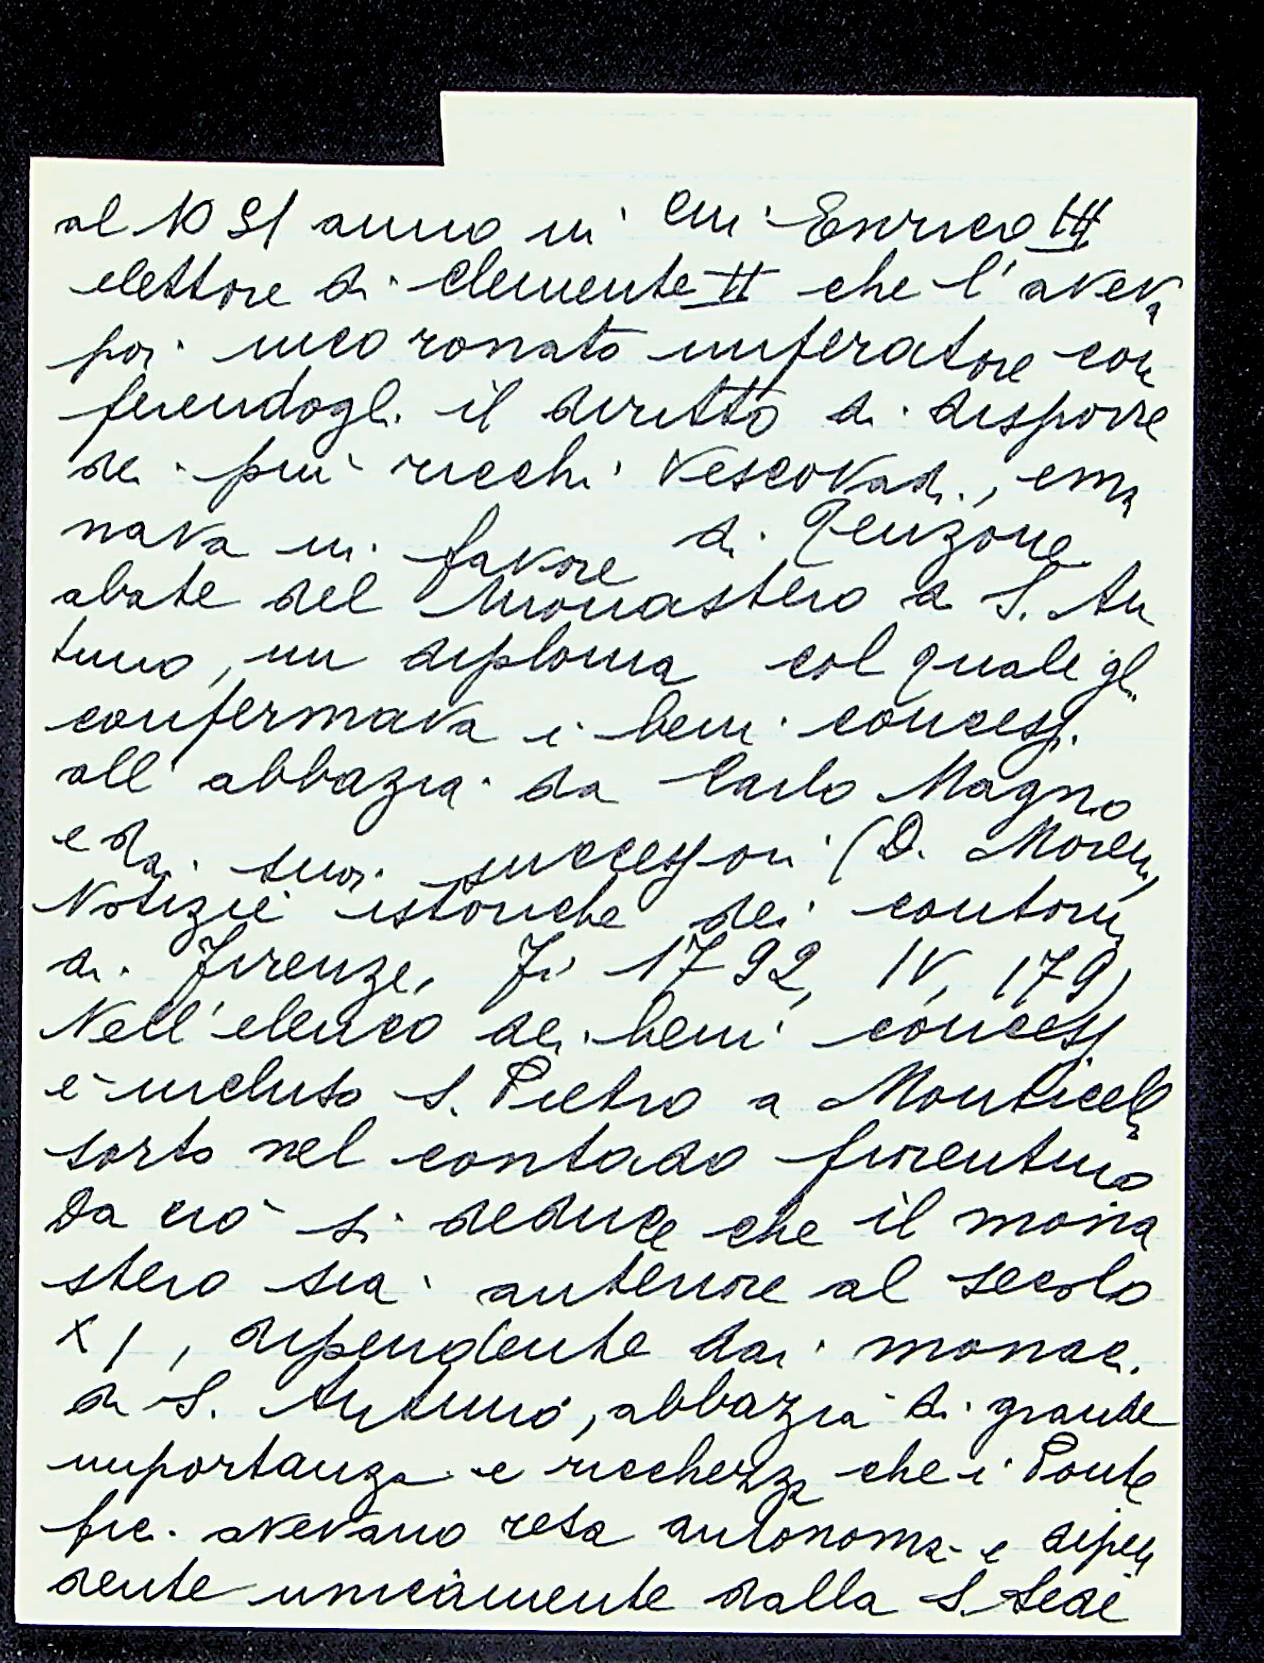 al 1051 anno in cui Enrico III
elettore di Clemente II che l'aveva
poi incoronato imperatore con
ferendogli il diritto di disporre
dei più ricchi Vescovadi, ema
nava in favore di Tenzone
abate del Monastero a S. An
timo, un diploma col quale gli
confermava i beni concessi
all'abbazia da Carlo Magno
e dai suoi successori (D. Moreni,
Notizie istoriche dei contorni
di Firenze, Fi 1792, IV, 179)
Nell'elenco dei beni concessi
è incluso S. Pietro a Monticelli
sorto nel contado fiorentino
Da ciò si deduce che il mona
stero sia anteriore al secolo
XI, dipendente dai monaci
di S. Antimo, abbazia di grande
importanza e ricchezza che i Ponte
fici avevano resa autonoma e dipen
dente unicamente dalla S. Sede